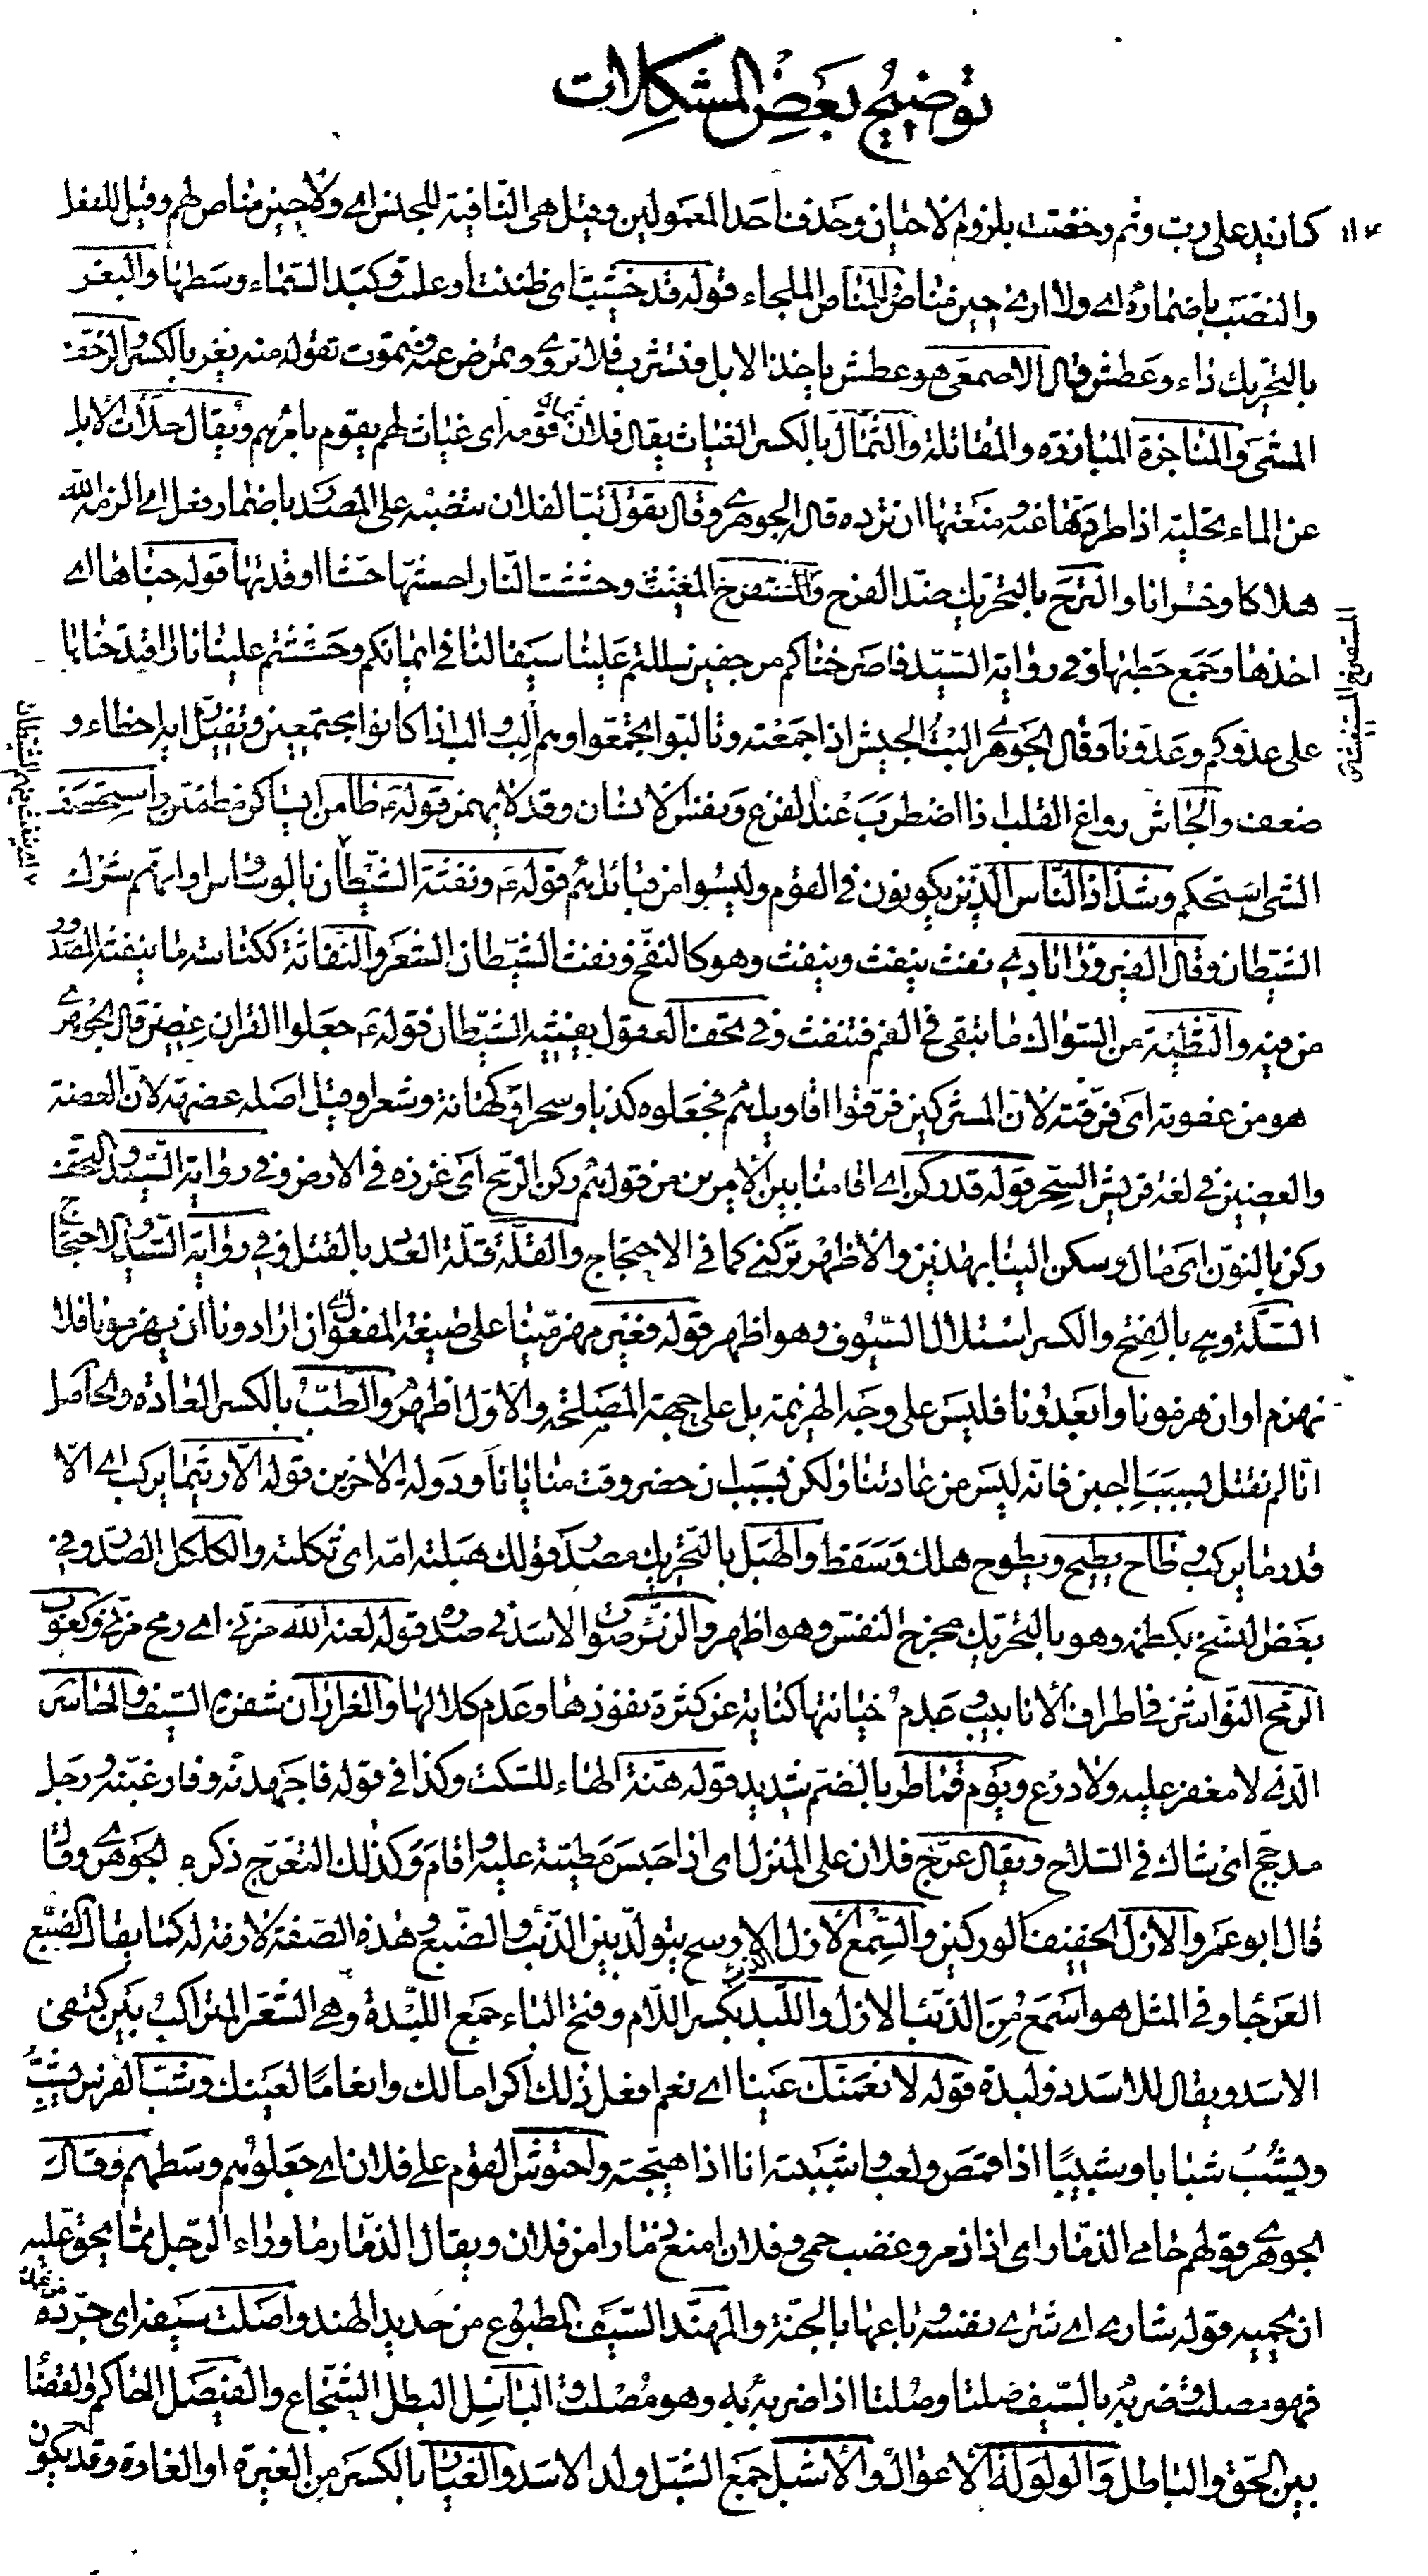 توضيح بعض المشكلات
كما تزيد على رب وثم وخصت بلزوم الاحيان وحذف احد المعمولين وقيل هي النافية للجنس اي ولا حين مناص لهم وقيل للفعل
والنصب باضماره اي ولا اري حين مناص المناص الملجاء قوله قد خشيت اي ظننت او علمت وكبد السماء وسطها والبغر
بالتحريك داء وعطش قال الاصمعي هو عطش ياخذ الابل فتشرب فلا تروي وتمرض عنه فتموت تقول منه بغر بالكسر والزحف
المشي والمناجزة المبارزة والمقاتلة والثمال بالكسر الغياث يقال فلان ثمال قومه اي غياث لهم يقوم بامرهم ويقال حلأت الابل
عن الماء تحلية اذا طردتها عنه ومنعتها ان ترده قال الجوهري وقال يقول تبا لفلان تنصبه على المصدر باضمار فعل اي الزمه الله
هلاكا وخسرانا والترح بالتحريك ضد الفرح والمستصرخ المغيث وحششت النار احشها حشا اوقدتها قوله جناها اي
اخذها وجمع حطبها وفي رواية السيد فاصرخناكم موجفين سللتم علينا سيفا لنا في ايمانكم وحششتم علينا نارا اقتدحناها
على عدوكم وعدونا وقال الجوهري البت الجيش اذا جمعته وتالبوا تجمعوا وهم الب والب اذا كانوا مجتمعين وتفيل رايه اخطاء و
ضعف والجاش رواغ القلب اذا اضطرب عند الفزع ونفس الانسان وقد لا يهمز قوله طامن اي ساكن مطمئن واستحصف
الشي استحكم وشذاذ الناس الذين يكونون في القوم وليسوا من قبائلهم قوله ونفثة الشيطان بالوساوس او انهم شرك
الشيطان وقال الفيروزابادي نفث ينفث وينفث وهو كالنفخ ونفث الشيطان الشعر والنفاثة ككناسة ما ينفثه المصدور
من فيه والشظية من السواك ما تبقى في الفم فتنفث وفي تحف العقول بقية الشيطان قوله جعلوا القران عضين قال الجوهري
هو من عضوته اي فرقته لان المشركين فرقوا اقاويلهم فجعلوه كذبا وسحرا وكهانة وشعرا وقيل اصله عضهة لان العضة
والعضين في لغة قريش السحر قوله قد ركز اي اقامنا بين الامرين من قولهم ركز الرمح اي غرزه في الارض وفي رواية السيد والتحف
ركن بالنون اي مال وسكن الينا بهذين والاظهر تركني كما في الاحتجاج والقلة قلة العدد بالقتل وفي رواية السيد والاحتجاج
السلة وهي بالفتح والكسر استلال السيوف وهو اظهر قوله فغير مهزمينا على صيغة المفعول اي ان ارادونا ان يهزمونا فلا
نهزم او ان هزمونا وابعدونا فليس على وجه الهزيمة بل على جهة المصلحة والاول اظهر والطب بالكسر العادة والحاصل
انا لم نقتل بسبب الجبن فانه ليس من عادتنا ولكن بسبب ان حضر وقت منايانا ودولة الاخرين قوله الا ريثما يركب اي الا
قدر ما يركب وطاح يطيح ويطوح هلك وسقط والهبل بالتحريك مصدر قولك هبلته امه اي ثكلته والكلكل الصدر وفي
بعض النسخ بكظمه وهو بالتحريك مخرج النفس وهو اظهر والزئير صوت الاسد في صدره قوله لعنه الله مزني اي رمح مزني وكعوب
الرمح النواشز في اطراف الانابيب وعدم خيانتها كناية عن كثرة نفوذها وعدم كلالها والغراران شفرتا السيف والحاسر
الذي لا مغفر عليه ولا درع ويوم قماطر بالضم شديد قوله هنة الهاء للسكت وكذا في قوله فاجهدنه وفارغبنه ورجل
مدجج اي شاك في السلاح ويقال عرج فلان على المنزل اي اذا حبس مطيته عليه واقام وكذلك التعرج ذكره الجوهري وقال
قال ابو عمرو الازل الخفيف الوركين والسمع الازل الذئب الارسح يتولد بين الذئب والضبع وهذه الصفة لازمة له كما يقال الضبع
العرجا وفي المثل هو اسمع من الذئب الازل واللبد بكسر اللام وفتح الباء جمع اللبدة وهي الشعر المتراكب بين كتفي
الاسد ويقال للاسد ذو لبدة قوله لا نعمنك عينا اي نعم افعل ذلك اكراما لك وانعاما لعينك وشب الفرس يشب
ويشب شبابا وشبيبا اذا قمص ولعب واشببته انا اذا هيجته واحتوش القوم على فلان اي جعلوه وسطهم وقال
الجوهري قولهم حامي الذمار اي اذا ذمر وغضب حمى وفلان امنع ذمارا من فلان ويقال الذمار ما وراء الرجل مما يحق عليه
ان يحميه قوله شاري اي شرى نفسه وباعها بالجنة والمهند السيف المطبوع من حديد الهند واصلت سيفه اي جرده من غمده
فهو مصلت وضربه بالسيف صلتا وصلتا اذا ضربه به وهو مصلت والباسل البطل الشجاع والفيصل الحاكم والقضاء
بين الحق والباطل والولولة الاعوال والاشبل جمع الشبل ولد الاسد والغيار بالكسر من الغيرة او الغارة وقد يكون
المستصرخ المستغيث